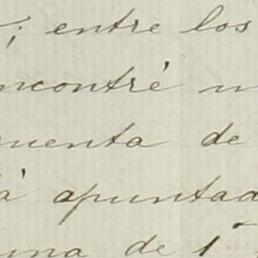 ; entre los
ncontré
uenta de
à apuntad
una de 1ª